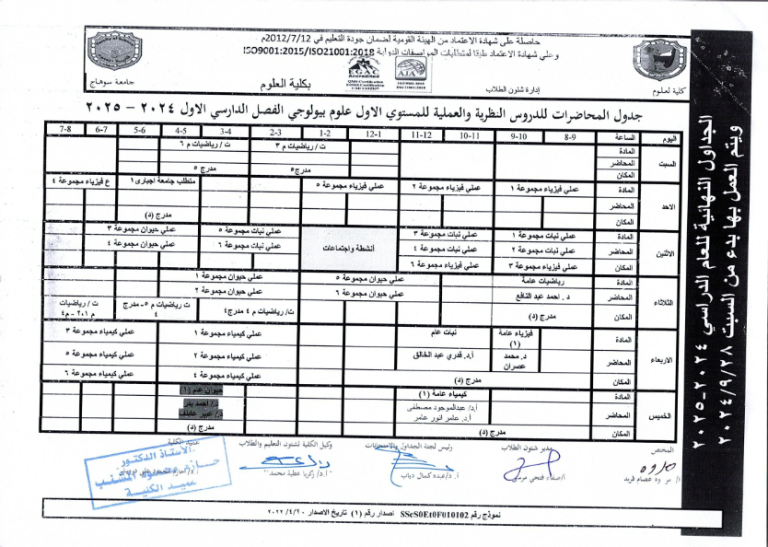 حاصلة على شهادة الاعتماد من الهيئة القومية لضمان جودة التعليم في 2012/7/12م
وعلى شهادة الاعتماد طبقا لمتطلبات المواصفات الدولية ISO9001:2015/ISO21001:2018
EGAC
AJA
كلية لعلوم
إدارة شئون الطلاب
بكلية العلوم
جامعة سوهاج
جدول المحاضرات للدروس النظرية والعملية للمستوي الاول علوم بيولوجي الفصل الدارسي الاول ٢٠٢٤ - ٢٠٢٥
اليوم الساعة 8-9 9-10 10-11 11-12 12-1 1-2 2-3 3-4 4-5 5-6 6-7 7-8
السبت
المادة ت/ رياضيات م ٣ ت/ رياضيات م ٦
المحاضر
المكان مدرج٥ مدرج ٥
الاحد
المادة عملي فيزياء مجموعة ١ عملي فيزياء مجموعة ٢ عملي فيزياء مجموعة ٥ متطلب جامعة اجبارى١ ع فيزياء مجموعة ٤
المحاضر
المكان مدرج (د)
الاثنين
المادة عملي نبات مجموعة ١ عملي نبات مجموعة ٣ أنشطة واجتماعات عملي نبات مجموعة ٥ عملي حيوان مجموعة ٣
المحاضر عملي نبات مجموعة ٢ عملي نبات مجموعة ٤ عملي نبات مجموعة ٦ عملي حيوان مجموعة ٤
المكان عملي فيزياء مجموعة ٣ عملي فيزياء مجموعة ٦
الثلاثاء
المادة رياضيات عامة عملي حيوان مجموعة ٥ عملي حيوان مجموعة ١
المحاضر د . احمد عبد النافع عملي حيوان مجموعة ٦ عملي حيوان مجموعة ٢
المكان مدرج (د) ت/ رياضيات م ٤ مدرج٤ ت/ رياضيات م ٥- مدرج ٤ ت / رياضيات م ١،٢ - م٤
الاربعاء
المادة فيزياء عامة (١) نبات عام عملي كيمياء مجموعة ١ عملي كيمياء مجموعة ٣
المحاضر د. محمد عصران أ.د. قدري عبد الخالق عملي كيمياء مجموعة ٢ عملي كيمياء مجموعة ٥
المكان مدرج (د) عملي كيمياء مجموعة ٤ عملي كيمياء مجموعة ٦
الخميس
المادة كيمياء عامة (١) حيوان عام (١)
المحاضر أ.د/ عبدالموجود مصطفى
أ.د. عامر انور عامر
المكان مدرج (د) مدرج (د)
المختص
مدير شئون الطلاب
رئيس لجنة الجداول والامتحانات
وكيل الكلية لشئون التعليم والطلاب
أ/ مروة عصام فريد
فتحي مرسي
أ.د/عبده كمال دياب
أ.د/ زكريا عطية محمد
الأستاذ الدكتور
عميد الكلية
نموذج رقم SScS0Et0F010102 اصدار رقم (١) تاريخ الاصدار ٢٠٢٢/٤/٢٠
الجداول النهائية للعام الدراسي ٢٠٢٤-٢٠٢٥
ويتم العمل بها بدء من السبت ٢٠٢٤/٩/٢٨